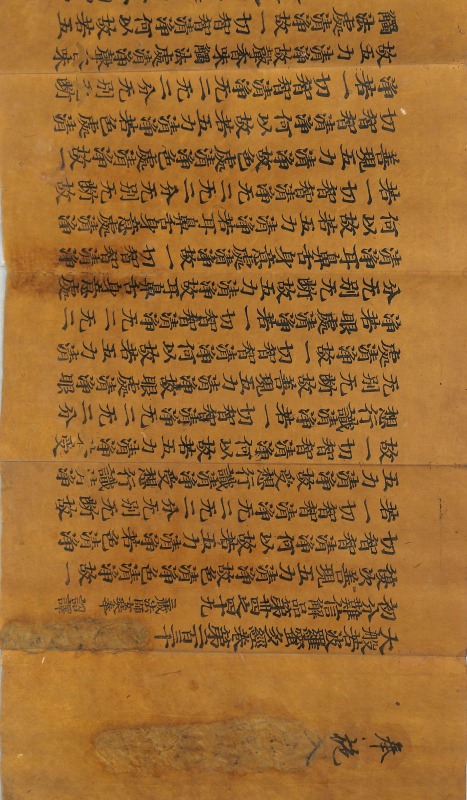 奉施入
大般若波羅蜜多經卷第二百三十
初分難信解品第卅四之卌九 三藏法師玄奘奉 詔譯
復次善現五力清淨故色清淨色清淨故一
切智智清淨何以故若五力清淨若色清淨
若一切智智清淨无二无二分无別无斷故
五力清淨故受想行識清淨受想行識清淨
故一切智智清淨何以故若五力清淨若受
想行識清淨若一切智智清淨无二无二分
无別无斷故善現五力清淨故眼處清淨眼
處清淨故一切智智清淨何以故若五力清
淨若眼處清淨若一切智智清淨无二无二
分无別无斷故五力清淨故耳鼻舌身意處
清淨耳鼻舌身意處清淨故一切智智清淨
何以故若五力清淨若耳鼻舌身意處清淨
若一切智智清淨无二无二分无別无斷故
善現五力清淨故色處清淨色處清淨故一
切智智清淨何以故若五力清淨若色處清
淨若一切智智清淨无二无二分无別无斷
故五力清淨故聲香味觸法處清淨聲香味
觸法處清淨故一切智智清淨何以故若五